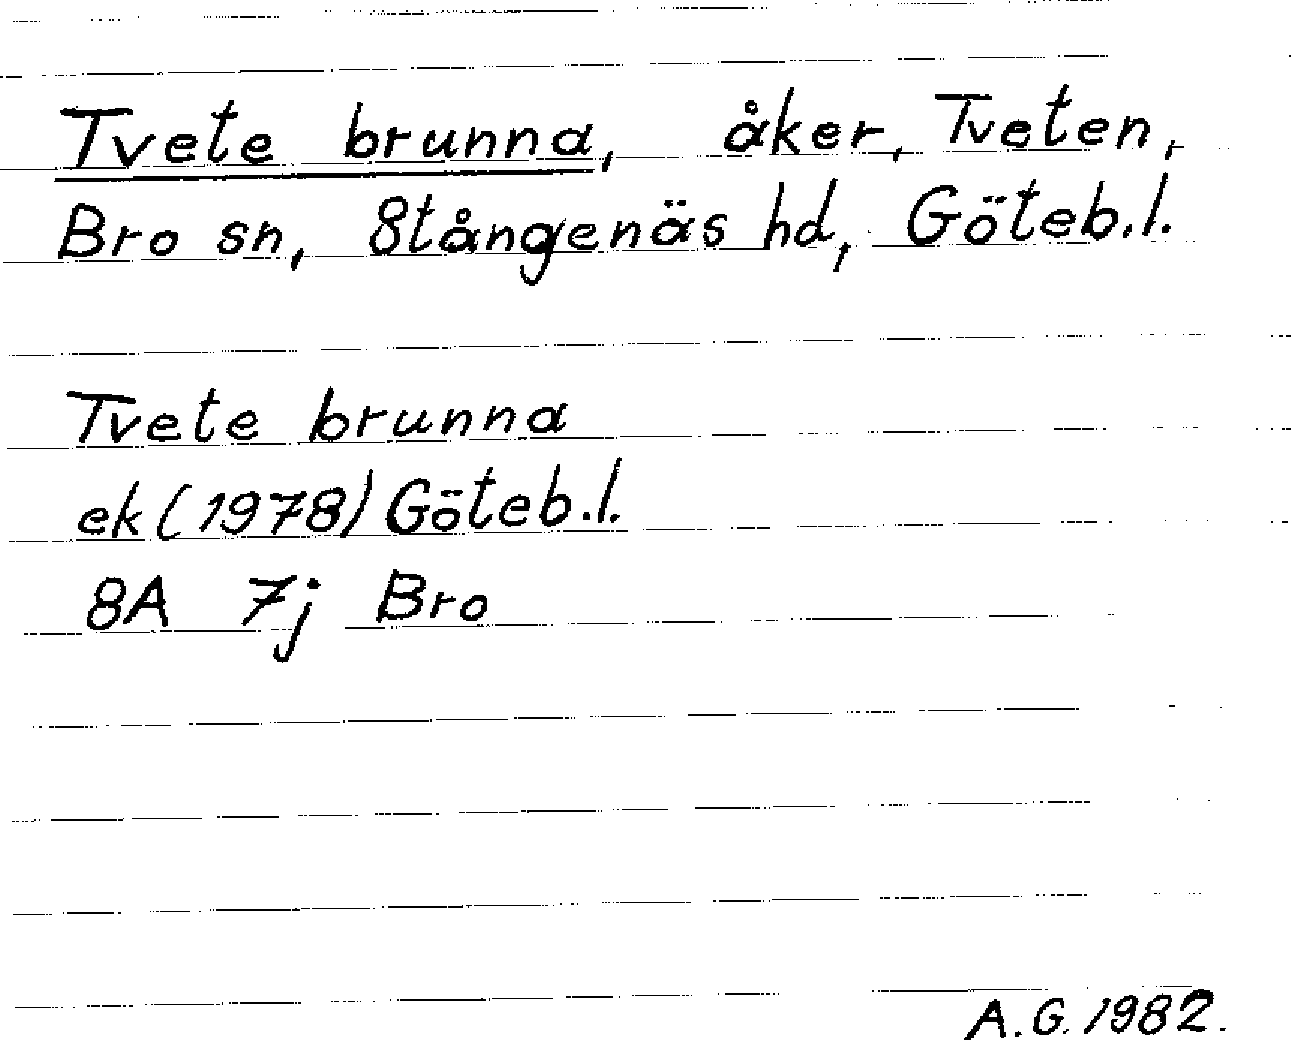 Tvete brunna, åker, Tveten,
Bro sn, Stångenäs hd, Göteb.l.
Tvete brunna
ek (1978) Göteb.l.
8A 7j Bro
A.G. 1982.